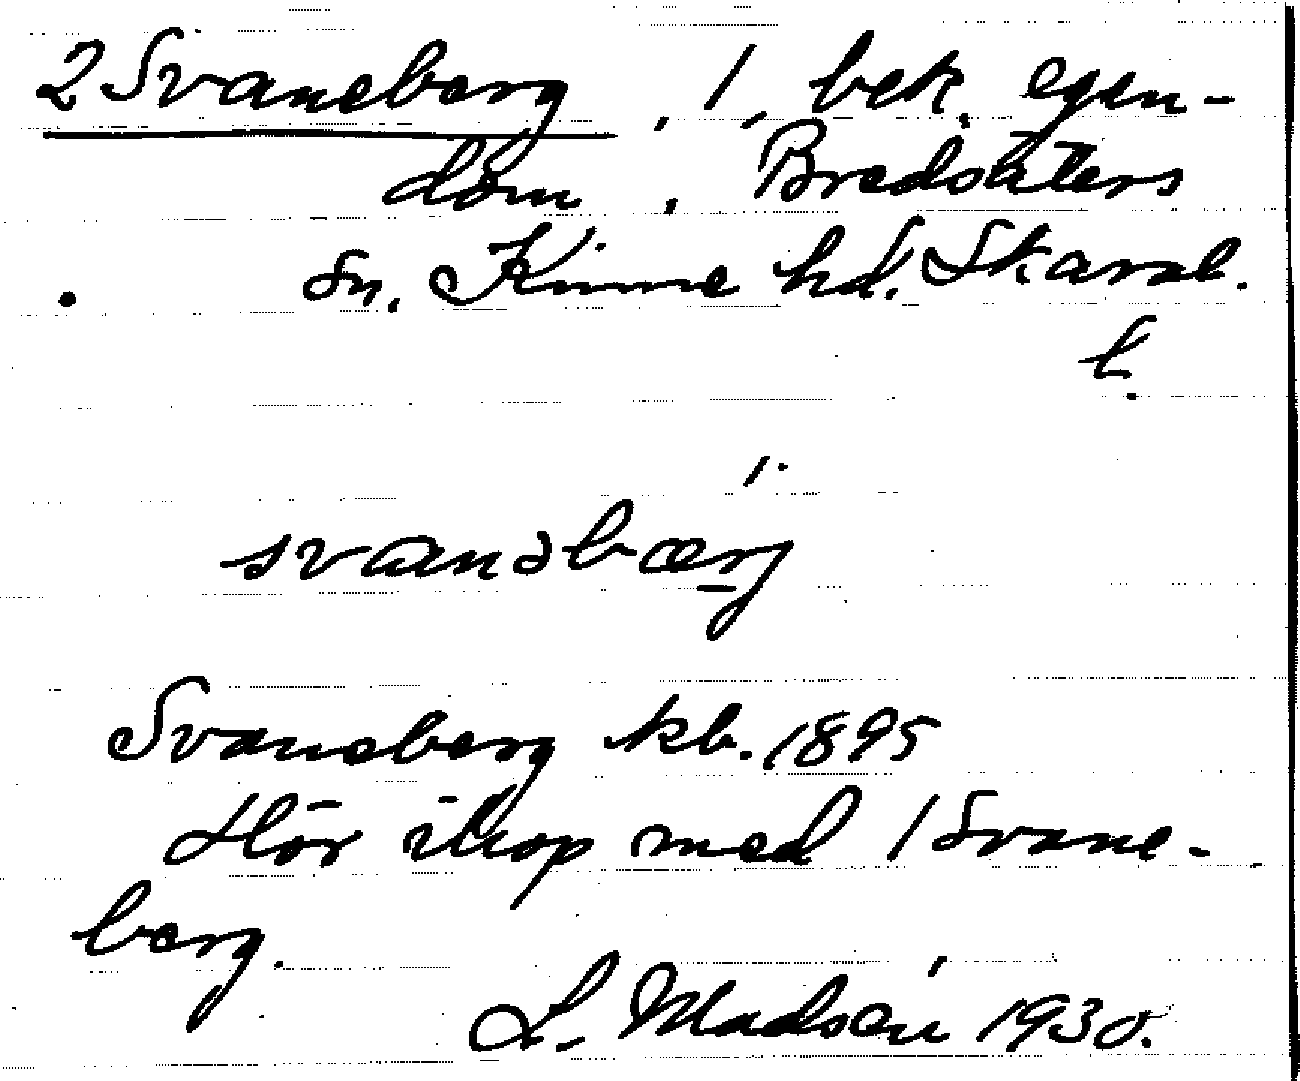 2 Svaneberg, 1, bek. egen-
dom, Bredsäters
sn. Kinne hd. Skarab.
l.
svanəbærj
Svaneberg kb. 1895
Hör ihop med 1 Svane-
berg.
L. Madsén 1930.